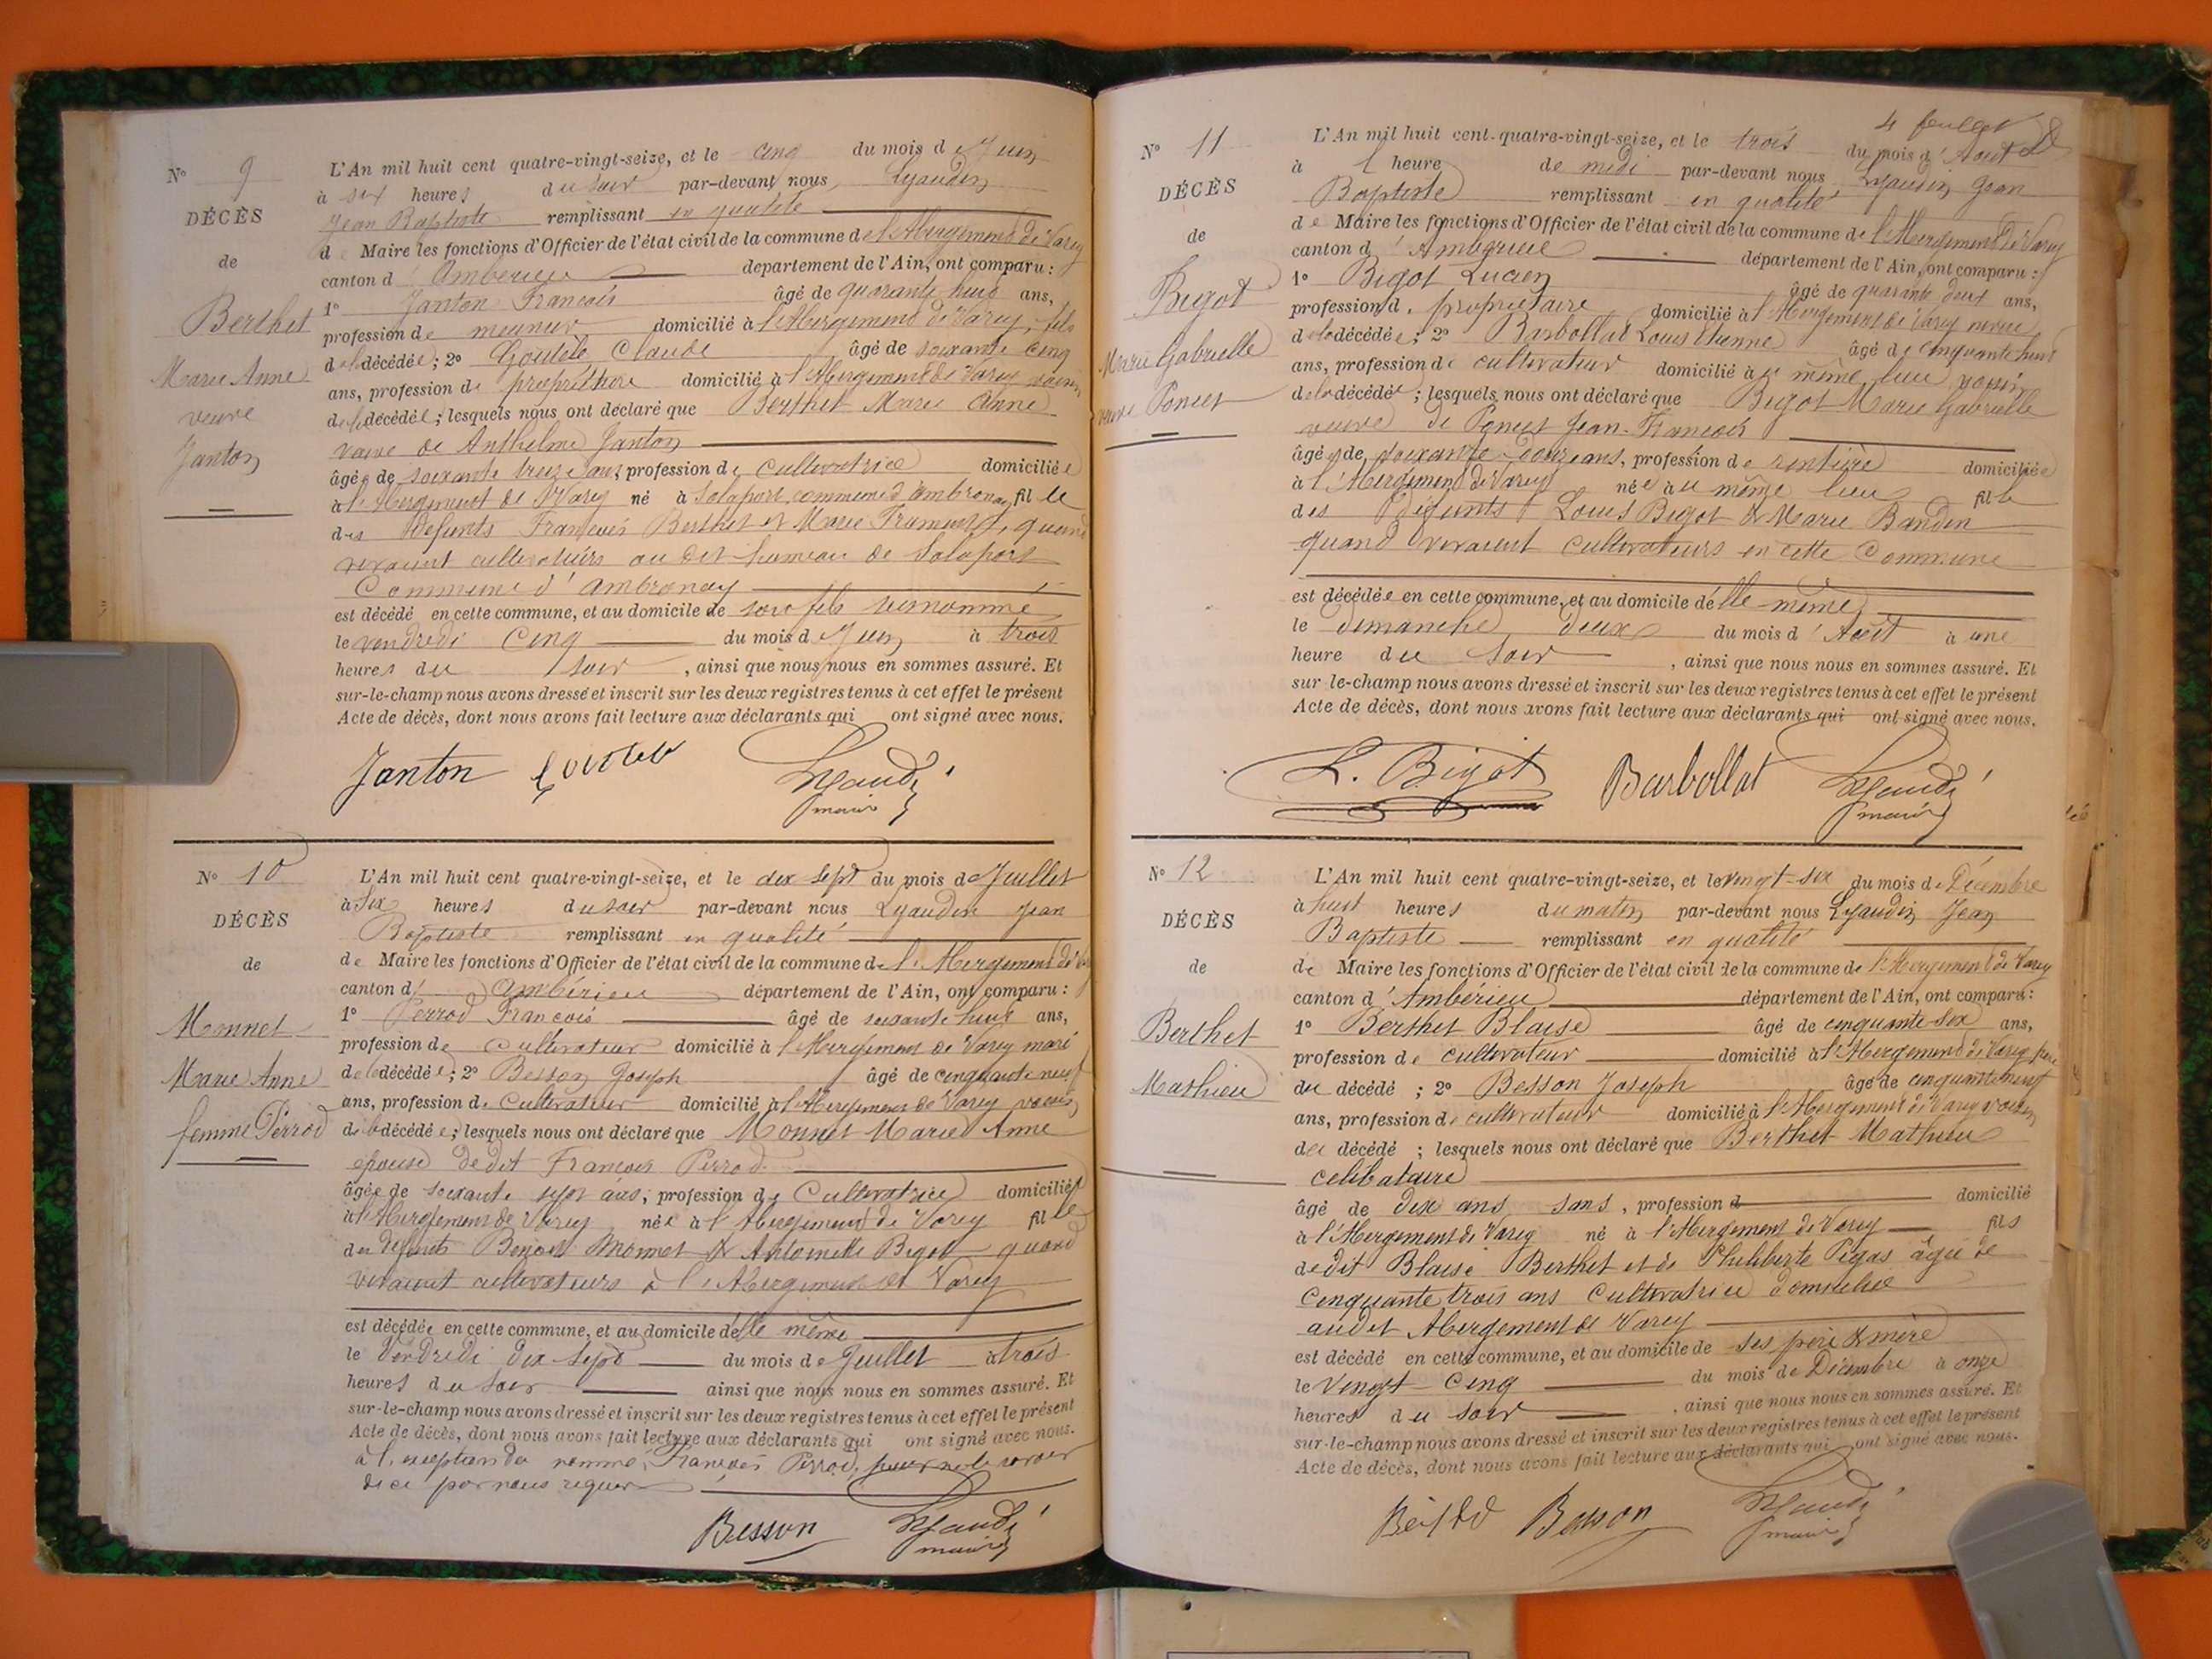 N° 9
DÉCÈS
de
Berthet
Marie Anne
veuve
Janton
L'An mil huit cent quatre-vingt-seize, et le cinq du mois de Juin
à six heures du soir par-devant nous Lyaudin
Jean Baptiste remplissant en qualité
de Maire les fonctions d'Officier de l'état civil de la commune de l'Abergement de Varey
canton d'Ambérieu département de l'Ain, ont comparu :
1° Janton Francois âgé de quarante huit ans,
profession de meunier domicilié à l'Abergement de Varey, fils
de la décédée ; 2° Claude âgé de soixante cinq
ans, profession de propriétaire domicilié à l'Abergement de Varey voisin
de la décédée ; lesquels nous ont déclaré que Berthet Marie Anne
veuve de Anthelme Janton
âgée de soixante treize ans, profession de cultivatrice domiciliée
à l'Abergement de Varey né à Salaport commune d'Ambronay fille
des défunts Francois Berthet et Marie quand
vivaient cultivateurs au dit hameau de Salaport
Commune d'Ambronay
est décédé en cette commune, et au domicile de son fils susnommé
le vendredi cinq du mois de Juin à trois
heures du soir, ainsi que nous nous en sommes assuré. Et
sur-le-champ nous avons dressé et inscrit sur les deux registres tenus à cet effet le présent
Acte de décès, dont nous avons fait lecture aux déclarants qui ont signé avec nous.
Janton Lyaudin
maire
N° 10
DÉCÈS
de
Monnet
Marie Anne
femme Perrod
L'An mil huit cent quatre-vingt-seize, et le dix sept du mois de Juillet
à Six heures du soir par-devant nous Lyaudin Jean
Baptiste remplissant en qualité
de Maire les fonctions d'Officier de l'état civil de la commune de l'Abergement de
canton d'Ambérieu département de l'Ain, ont comparu :
1° Perrod Francois âgé de soixante huit ans,
profession de cultivateur domicilié à l'Abergement de Varey mari
de la décédée ; 2° Besson Joseph âgé de cinquante neuf
ans, profession de Cultivateur domicilié à l'Abergement de Varey voisin
de la décédée ; lesquels nous ont déclaré que Monnet Marie Anne
épouse dedit Francois Perrod
âgée de soixante sept ans, profession de Cultivatrice domiciliée
à l'Abergement de Varey née à l'Abergement de Varey fille
des défunts Benoit Monnet & Antoinette Bigot quand
vivaient cultivateurs à l'Abergement de Varey
est décédée en cette commune, et au domicile de elle même
le Vendredi dix sept du mois de Juillet à trois
heures du soir ainsi que nous nous en sommes assuré. Et
sur-le-champ nous avons dressé et inscrit sur les deux registres tenus à cet effet le présent
Acte de décès, dont nous avons fait lecture aux déclarants qui ont signé avec nous.
à l'exception du nommé Francois Perrod, pour ne le savoir
de ce par nous requis
Besson Lyaudin
maire
4 feuillet
N° 11
DÉCÈS
de
Bigot
Marie Gabrielle
veuve Poncet
L'An mil huit cent-quatre-vingt-seize, et le trois du mois d'Aout
à 1 heure de midi par-devant nous Lyaudin Jean
Baptiste remplissant en qualité
de Maire les fonctions d'Officier de l'état civil de la commune de l'Abergement de Varey
canton d'Ambérieu département de l'Ain, ont comparu :
1° Bigot Lucien âgé de quarante deux ans,
profession d. propriétaire domicilié à l'Abergement de Varey neveu
de la décédée ; 2° Barbollat Louis Etienne âgé de cinquante huit
ans, profession de cultivateur domicilié à u même lieu voisin
de la décédée ; lesquels nous ont déclaré que Bigot Marie Gabrielle
veuve de Poncet Jean-Francois
âgée de soixante douze ans, profession de rentière domiciliée
à l'Abergement de Varey née à u même lieu fille
des défunts Louis Bigot & Marie Bandin
quand vivaient cultivateurs en cette Commune
est décédée en cette commune, et au domicile de elle-même
le dimanche deux du mois d'Août à une
heure du soir, ainsi que nous nous en sommes assuré. Et
sur-le-champ nous avons dressé et inscrit sur les deux registres tenus à cet effet le présent
Acte de décès, dont nous avons fait lecture aux déclarants qui ont signé avec nous.
L. Bigot Barbollat Lyaudin
maire
N° 12
DÉCÈS
de
Berthet
Mathieu
L'An mil huit cent quatre-vingt-seize, et le vingt-six du mois de Décembre
à huit heures du matin par-devant nous Lyaudin Jean
Baptiste remplissant en qualité
de Maire les fonctions d'Officier de l'état civil de la commune de l'Abergement de Varey
canton d'Ambérieu département de l'Ain, ont comparu :
1° Berthet Blaise âgé de cinquante-six ans,
profession de cultivateur domicilié à l'Abergement de Varey père
du décédé ; 2° Besson Joseph âgé de cinquante neuf
ans, profession de cultivateur domicilié à l'Abergement de Varey voisin
du décédé ; lesquels nous ont déclaré que Berthet Mathieu
célibataire
âgé de dix ans sans, profession d domicilié
à l'Abergement de Varey né à l'Abergement de Varey fils
dedit Blaise Berthet et de Philiberte Pegas âgée de
cinquante trois ans Cultivatrice domiciliée
audit Abergement de Varey
est décédé en cette commune, et au domicile de ses père & mère
le vingt-cinq du mois de Décembre à onze
heures du soir, ainsi que nous nous en sommes assuré. Et
sur-le-champ nous avons dressé et inscrit sur les deux registres tenus à cet effet le présent
Acte de décès, dont nous avons fait lecture aux déclarants qui ont signé avec nous.
Besson Lyaudin
maire